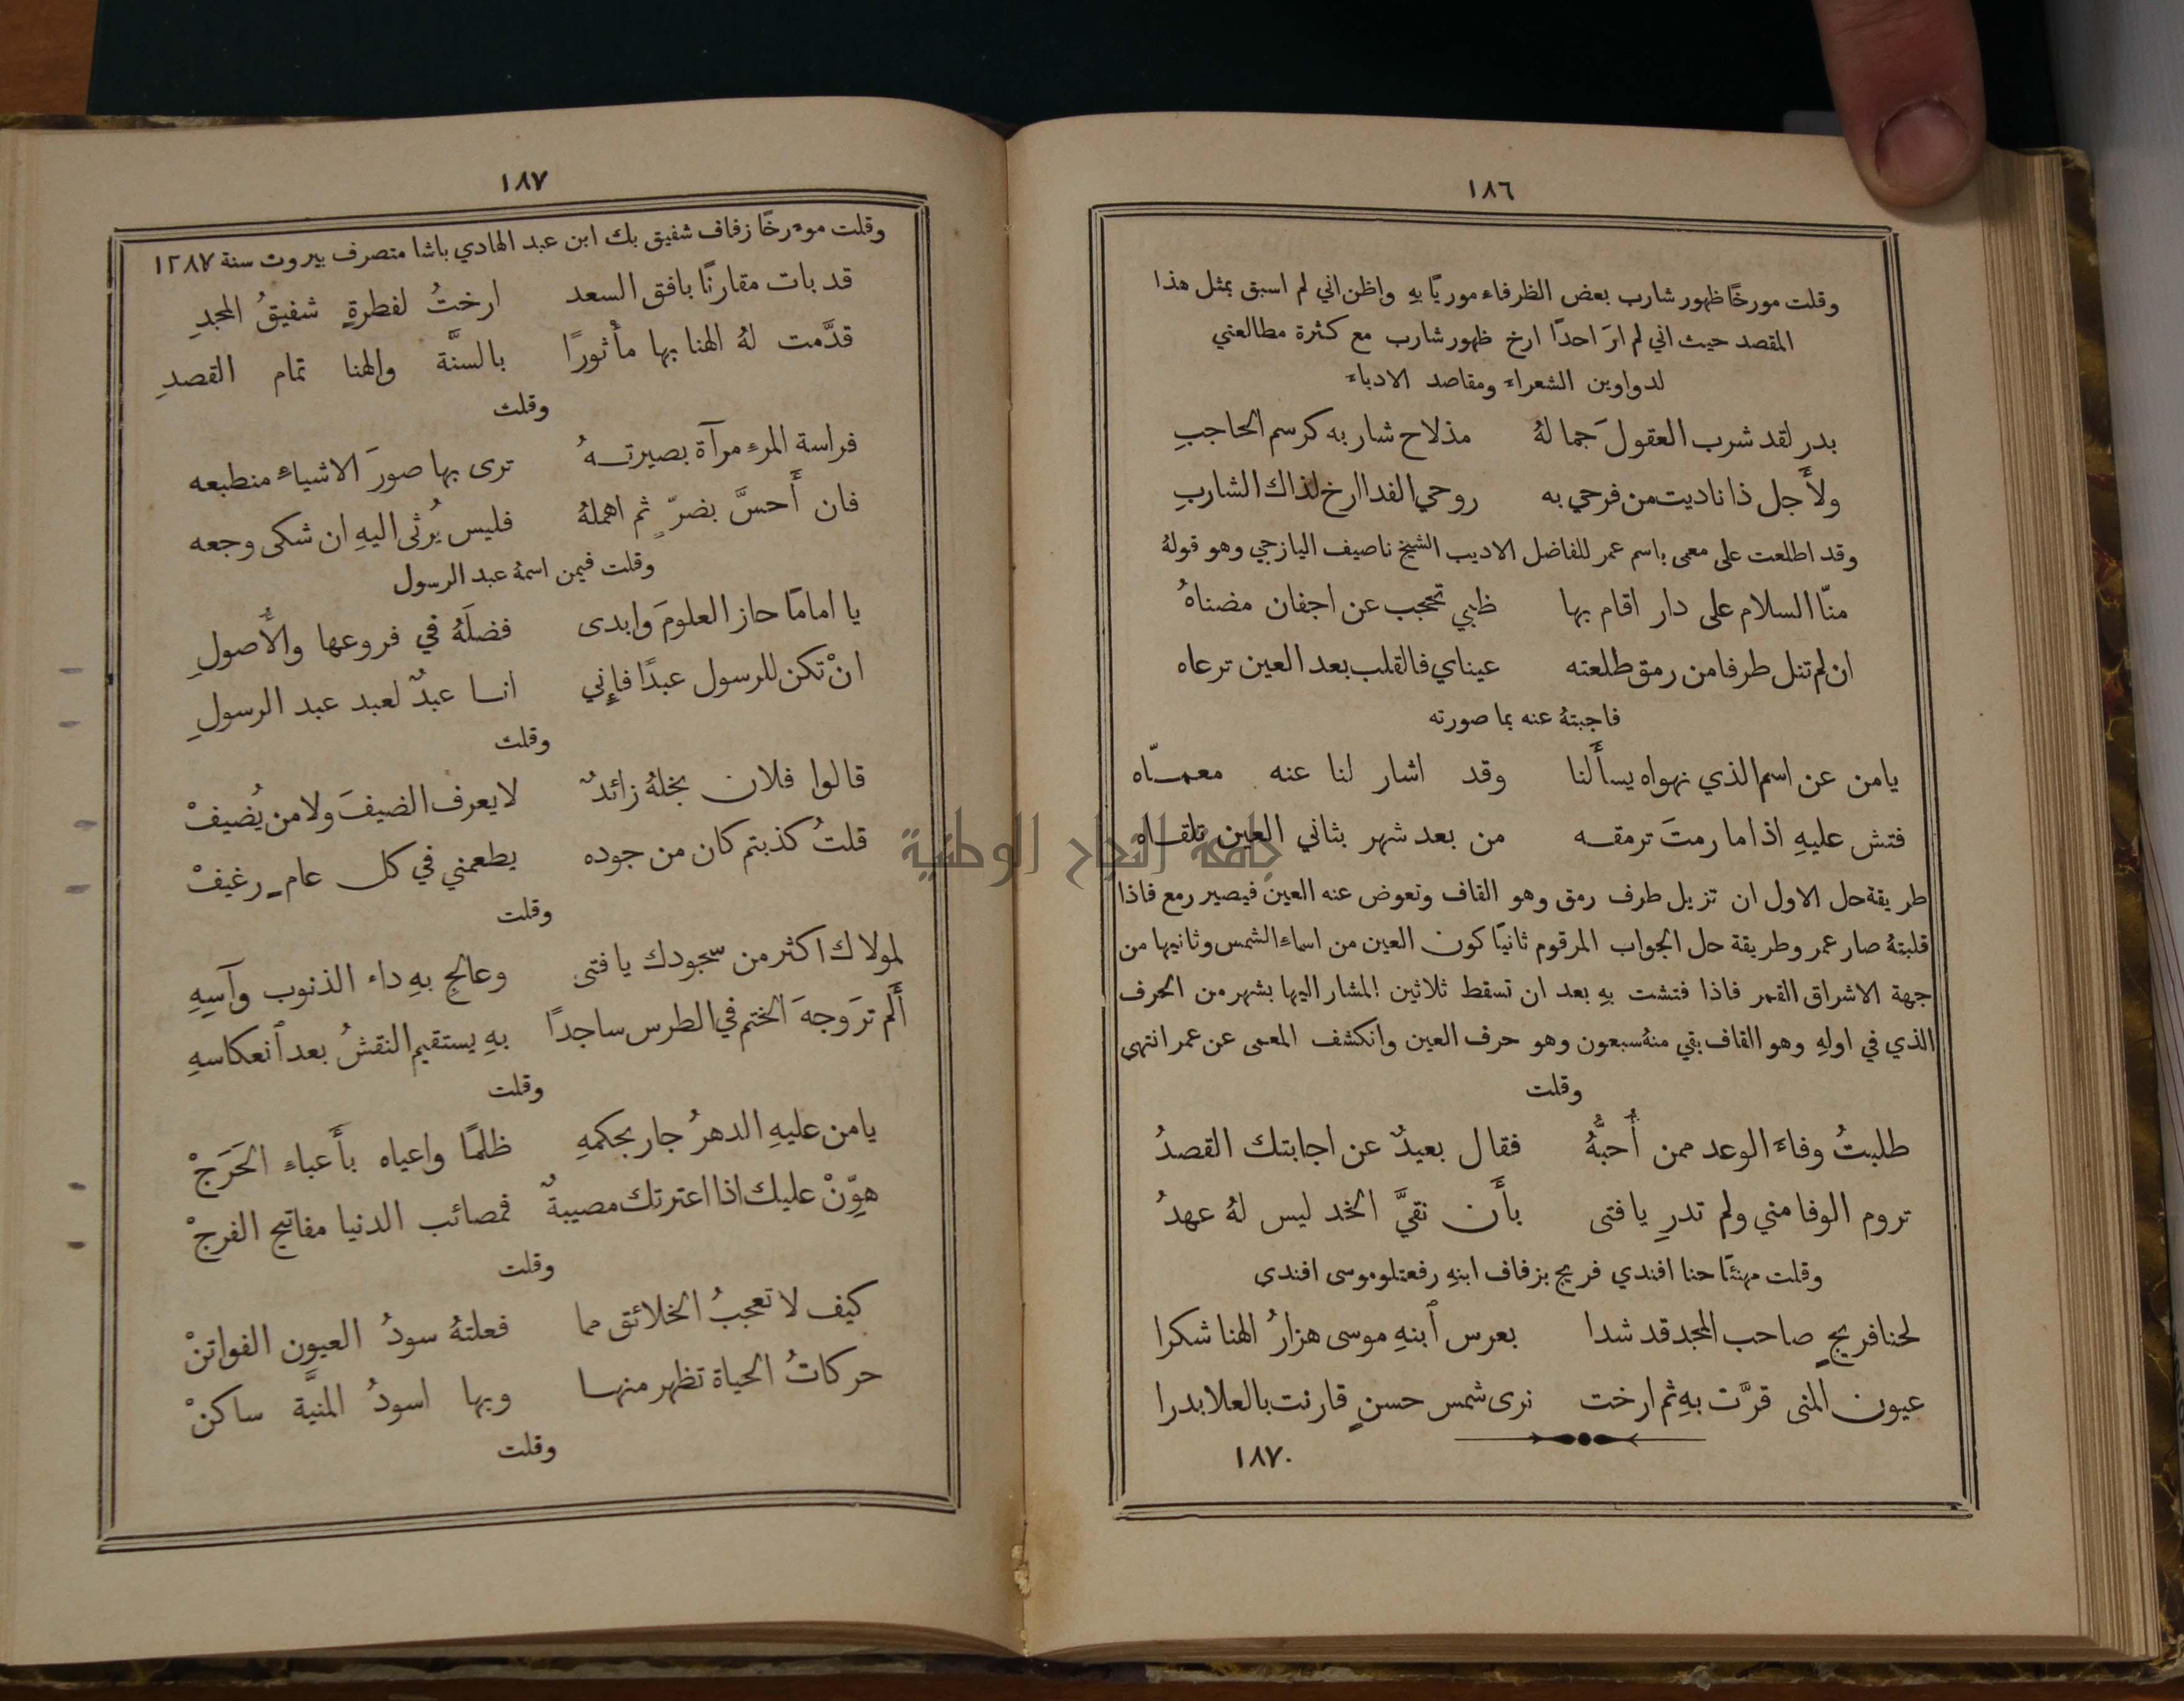 ١٨٦
وقلت مورخًا ظهور شارب بعض الظرفاء موريًا بهِ واظن اني لم اسبق بمثل هذا
المقصد حيث اني لم ارَ احدًا ارخ ظهور شارب مع كثرة مطالعتي
لدواوين الشعراء ومقاصد الادباء
بدر لقد شرب العقولَ جمالهُ مذلاح شاربه كرسم الحاجبِ
ولأَجل ذا ناديت من فرحي به روحي الفدا ارخ لذاك الشاربِ
وقد اطلعت على معمى باسم عمر للفاضل الاديب الشيخ ناصيف اليازجي وهو قولهُ
منّا السلام على دار اقام بها ظبي تحجب عن اجفان مضناهُ
ان لم تنل طرفا من رمق طلعته عيناي فالقلب بعد العين ترعاه
فاجبتهُ عنه بما صورته
يامن عن اسم الذي نهواه يسأَلنا وقد اشار لنا عنه معمّاه
فتش عليهِ اذا ما رمتَ ترمقه من بعد شهر بثاني العين تلقاه
طريقة حل الاول ان تزيل طرف رمق وهو القاف وتعوض عنه العين فيصير رمع فاذا
قلبتهُ صار عمر وطريقة حل الجواب المرقوم ثانيًا كون العين من اسماء الشمس وثانيها من
جهة الاشراق القمر فاذا فتشت بهِ بعد ان تسقط ثلاثين المشار اليها بشهر من الحرف
الذي في اولهِ وهو القاف بقي منهُ سبعون وهو حرف العين وانكشف المعمى عن عمر انتهى
وقلت
طلبتُ وفاءَ الوعد ممن أُحبُّهُ فقال بعيدٌ عن اجابتك القصدُ
تروم الوفا مني ولم تدرِ يا فتى بأَن نقيَّ الخد ليس لهُ عهدُ
وقلت مهنئًا حنا افندي فريج بزفاف ابنهِ رفعتلو موسى افندى
لحنا فريجٍ صاحب المجد قد شدا بعرس ٱبنهِ موسى هزارُ الهنا شكرا
عيون المنى قرَّت بهِ ثم ارخت نرى شمس حسنٍ قارنت بالعلا بدرا
١٨٧٠
١٨٧
وقلت موءرخًا زفاف شفيق بك ابن عبد الهادي باشا متصرف بيروت سنة ١٢٨٧
قد بات مقارنًا بافق السعد ارختُ لفطرةٍ شفيقُ المجدِ
قدَّمت لهُ الهنا بها مأثورًا بالسنَّة والهنا تمام القصدِ
وقلت
فراسة المرء مرآة بصيرتهُ ترى بها صورَ الاشياءِ منطبعه
فان أَحسَّ بضرّ ثم اهملهُ فليس يُرثى اليهِ ان شكى وجعه
وقلت فيمن اسمهُ عبد الرسول
يا امامًا حاز العلومَ وابدى فضلَهُ في فروعها والأُصولِ
انْ تكن للرسول عبدًا فإِني انا عبدٌ لعبد عبد الرسولِ
وقلت
قالوا فلان بخلهُ زائدٌ لا يعرف الضيفَ ولا من يُضيفْ
قلتُ كذبتم كان من جوده يطعمني في كل عامٍ رغيفْ
وقلت
لمولاك اكثر من سجودك يا فتى وعالج بهِ داء الذنوب وآسِهِ
أَلم ترَ وجهَ الختم في الطرس ساجدًا بهِ يستقيم النقشُ بعد ٱنعكاسهِ
وقلت
يامن عليهِ الدهرُ جار بحكمهِ ظلمًا واعياه بأَعباءِ الحَرَجْ
هوِّنْ عليك اذا اعترتك مصيبةٌ فمصائب الدنيا مفاتيح الفرجْ
وقلت
كيف لا تعجبُ الخلائق مما فعلتهُ سودُ العيون الفواتنْ
حركاتُ الحياة تظهر منها وبها اسودُ المنيَّة ساكنْ
وقلت
جامعة النجاح الوطنية